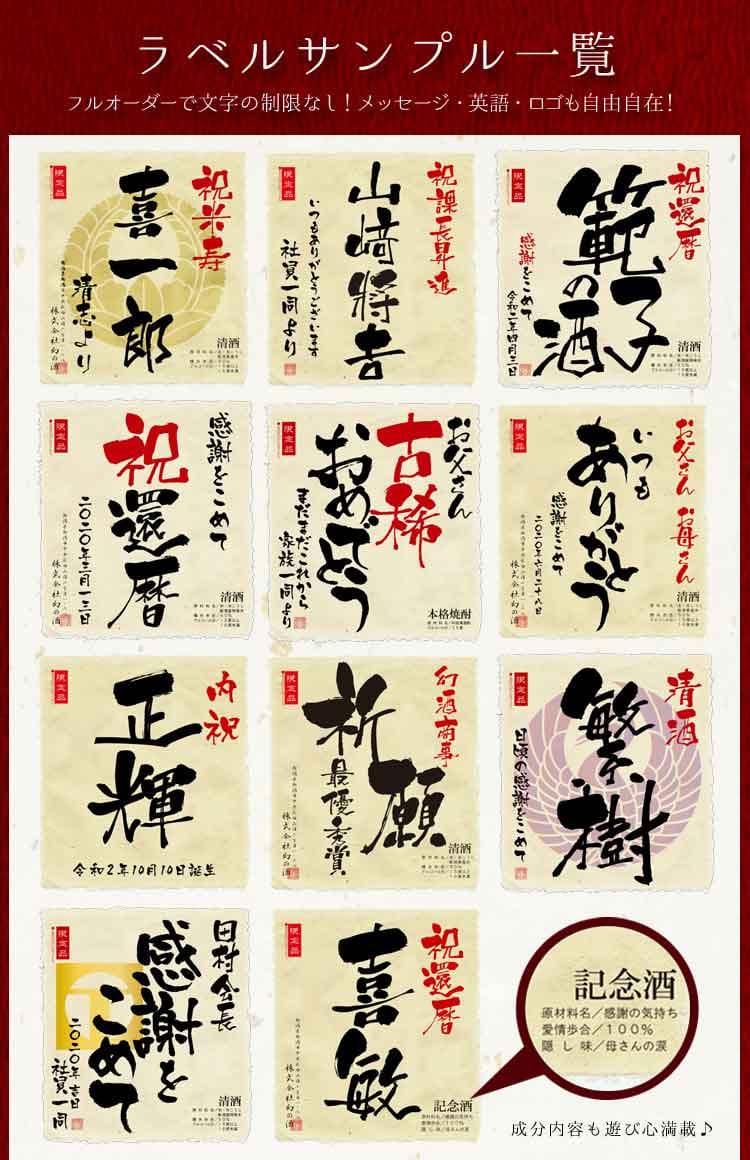 ラベルサンプル一覧
フルオーダーで文字の制限なし！メッセージ・英語・ロゴも自由自在！
限定品
祝米寿
喜一郎
清志より
株式会社幻の酒
清酒
限定品
祝課長昇進
山﨑將吉
いつもありがとうございます
社員一同より
限定品
祝還暦
範子の酒
感謝をこめて
令和二年四月三日
清酒
限定品
感謝をこめて
祝還暦
二〇二〇年三月一三日
株式会社幻の酒
清酒
限定品
お父さん
古稀
おめでとう
まだまだこれから
家族一同より
本格焼酎
限定品
お父さん お母さん
いつも
ありがとう
感謝をこめて
二〇二〇年六月二十八日
株式会社幻の酒
清酒
限定品
内祝
正輝
令和2年10月10日誕生
限定品
幻酒商事
祈願
最優秀賞
株式会社幻の酒
清酒
限定品
清酒
繁樹
日頃の感謝をこめて
限定品
田村会長
感謝を
こめて
二〇二〇年吉日
社員一同
清酒
限定品
祝還暦
喜敏
株式会社幻の酒
記念酒
原材料名／感謝の気持ち
愛情歩合／100%
隠し味／母さんの涙
記念酒
原材料名／感謝の気持ち
愛情歩合／100%
隠し味／母さんの涙
成分内容も遊び心満載♪